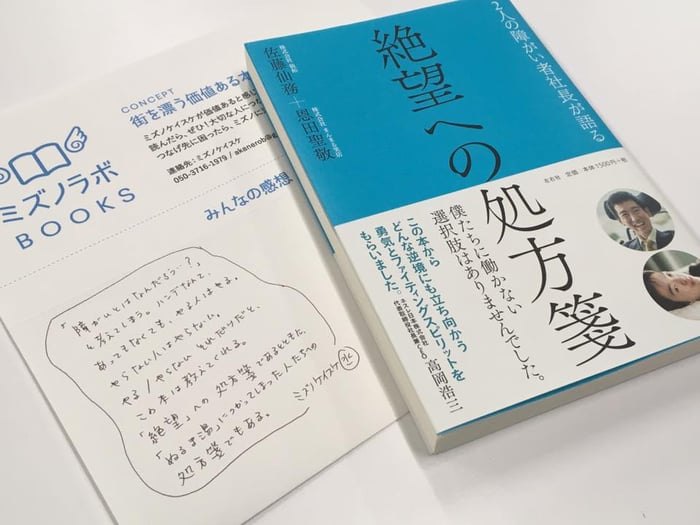 ミズノラボ
BOOKS
CONCEPT
街を漂う価値ある本
ミズノケイスケが価値あると感じ
読んだら、ぜひ!大切な人につな
つなげ先に困ったら、ミズノに
連絡先:ミズノケイスケ
050-3716-1979 / akanerob@g
みんなの感想
「障がいとはなんだろう…?」
と考えてしまう。ハンデなんて、
あってもなくても、やる人はやる。
やらない人はやらない。
やる/やらない それだけだと、
この本は教えてくれる。
「絶望」への処方箋であるとともに、
「ぬるま湯」につかってしまった人たちへの
処方箋でもある。
ミズノケイスケ
2人の障がい者社長が語る
絶望への処方箋
佐藤仙務+恩田聖敬
左右社 定価 本体1500円+税
僕たちに働かない
選択肢はありませんでした。
この本から
どんな逆境にも立ち向かう
勇気とファイティングスピリットを
もらいました。
ネスレ日本株式会社
代表取締役社長兼CEO 高岡浩三